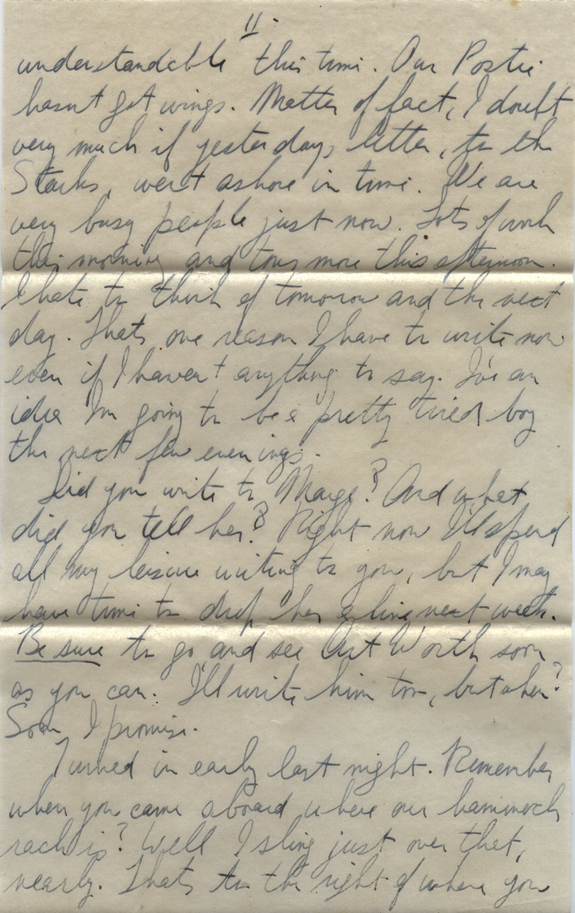 11.
understandable this time. Our Postie
hasnt got wings. Matter of fact, I doubt
very much if yesterdays letter, to the
Starks, went ashore in time. We are
very busy people just now. Lots of work
this morning and tons more this afternoon.
I hate to think of tomorrow and the next
day. Thats one reason I have to write now
even if I haven't anything to say. I've an
idea Im going to be a pretty tired boy
the next few evenings.
Did you write to Marge? And what
did you tell her? Right now I'll spend
all my leisure writing to you, but I may
have time to drop her a line next week.
Be sure to go and see Art Worth soon
as you can. I'll write him too, but when?
Soon, I promise.
Turned in early last night. Remember
when you came aboard where our hammock
rack is? Well I sling just over that,
nearly. Thats to the right of where you